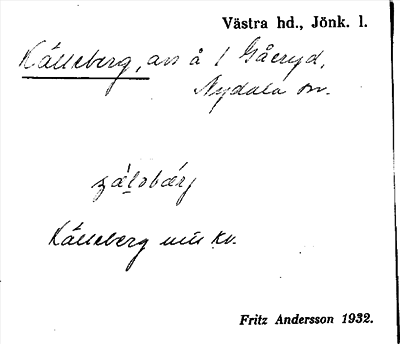 Västra hd., Jönk. l.
Källeberg, avs å 1 Gåeryd,
Nydala sn.
Källeberg mu kv.
Fritz Andersson 1932.